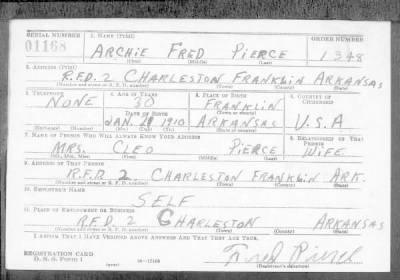 SERIAL NUMBER 1. NAME (Print) ORDER NUMBER
01168 ARCHIE FRED PIERCE 1348
(First) (Middle) (Last)
2. ADDRESS (Print)
R.F.D. 2 CHARLESTON FRANKLIN ARKANSAS
(Number and street or R. F. D. number) (Town) (County) (State)
3. TELEPHONE 4. AGE IN YEARS 5. PLACE OF BIRTH 6. COUNTRY OF CITIZENSHIP
NONE 30 FRANKLIN
DATE OF BIRTH (Town or county)
JAN. 1910 ARKANSAS U.S.A
(Exchange) (Number) (Mo.) (Day) (Yr.) (State or country)
7. NAME OF PERSON WHO WILL ALWAYS KNOW YOUR ADDRESS 8. RELATIONSHIP OF THAT PERSON
MRS. CLEO PIERCE WIFE
(Mr., Mrs., Miss) (First) (Middle) (Last)
9. ADDRESS OF THAT PERSON
R.F.D. 2 CHARLESTON FRANKLIN ARK.
(Number and street or R. F. D. number) (Town) (County) (State)
10. EMPLOYER'S NAME
SELF
11. PLACE OF EMPLOYMENT OR BUSINESS
R.F.D 2 CHARLESTON ARKANSAS
(Number and street or R. F. D. number) (Town) (County) (State)
I AFFIRM THAT I HAVE VERIFIED ABOVE ANSWERS AND THAT THEY ARE TRUE.
REGISTRATION CARD
D. S. S. Form 1 16—17105 Fred Pierce
(Registrant's signature)